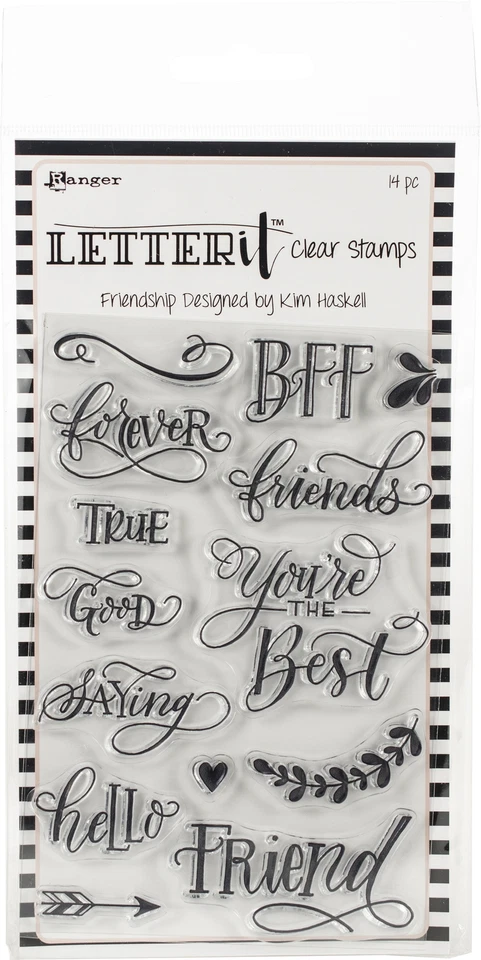 Ranger
14 pc
LETTERit™ Clear Stamps
Friendship Designed by Kim Haskell
BFF
forever
friends
TRUE
You're
THE
Best
GOOD
SAYing
hello
Friend